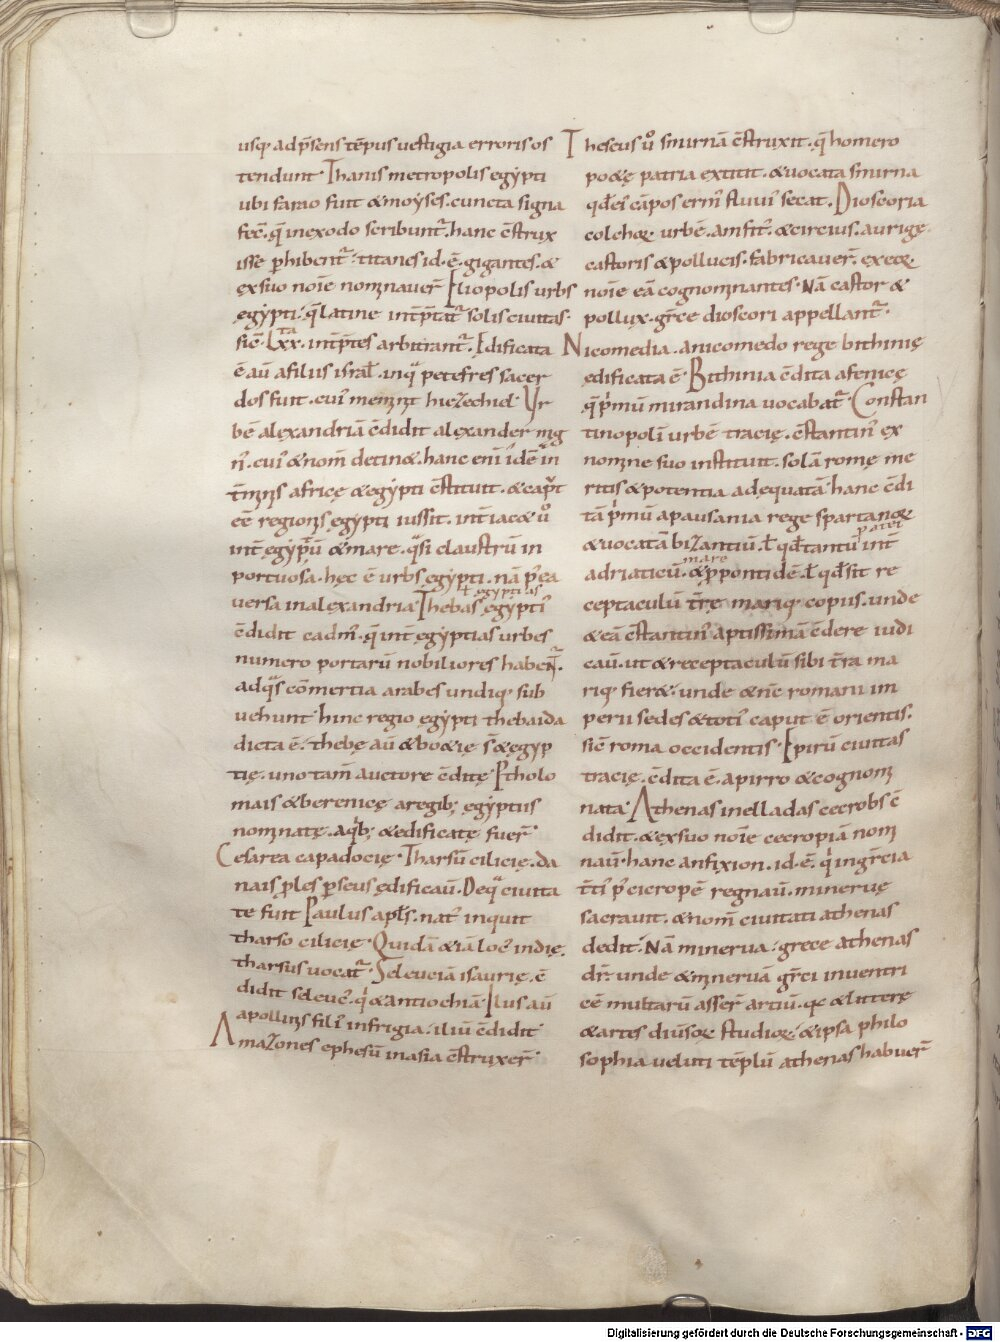 usq; adp̄sens tēpus uestigia erroris os
tendunt. Thanis metropolis egypti
ubi farao fuit & moyses. cuncta signa
fec̄. q̄ inexodo scribunt᷑. hanc c̄strux
isse p̄hibent᷑. titanes id. ē. gigantes. &
exsuo noīe nomīnauer̄. Eliopolis urbs
ęgypti. q̄ latine int̄p̄tat᷑ solis ciuitas.
sic̄. Lxx. int̄p̄tes arbitrant᷑. Edificata
ē aū afiliis isrƚ. inq̄ petefres sacer
dos fuit. cui᾽ memīnit hiezechiel. Ur
bē alexandriā c̄didit alexander mag
n᾽. cui᾽ & nom̄ detin&. hanc eni᾽ idē in
t̄mīnis africę & ęgypti c̄stituit. & cap̄t
eē regionis ęgypti iussit. int̄iac& u᷎
int̄ ęgyp̄tū & mare. q̄si claustrū in
portuosa. hęc ē urbs ęgypti. nā p̄ea
uersa inalexandria. Thebas ęgypti᾽
ł egyptias
c̄didit cadm᾽. q̄ int̄ ęgyptias urbes
numero portarū nobiliores habent᷑.
adq̄s cōmertia arabes undiq; sub
uehunt. hinc regio ęgypti thebaida
dicta ē. thebę aū & boetię s̄ & ęgyp
tię. uno tam̄ auctore c̄ditę. Ptholo
mais & berenicę aregib; ęgyptiis
nomīnatę. aq̄b; & edificatę fuer̄.
Cesarea capadocię. Tharsū cilicię. da
nais p̄les p̄seus ędificaū. Deq̄ ciuita
te fuit Paulus apƚs. nat᾽ inquit
tharso cilicię. Quidā & iā loc᾽ indię.
tharsus uocat᷑. Seleuciā isaurię. c̄
didit seleuc᾽. q᾽ & antiochiā. Ilus aū
apollinis fili᾽ infrigia. iliū c̄didit.
Amazones ephesū inasia c̄struxer̄.
Theseus u᷎ smirnā c̄struxit. q̄ homero
po&ę patria extitit. & uocata smirna
qđ ei᾽ cāpos erm᾽ fluui᾽ secat. Dioscoria
colchoꝝ urbē. amfit᾽. & circius. aurigę.
castoris & pollucis. fabricauer̄. exeoꝝ
noīe eā cognomīnantes. Nā castor &
pollux. gr̄ce dioscori appellant᷑.
Nicomedia. anicomedo rege bithinię
ędificata ē. Bithinia c̄dita afenicę
q̄ p̄mū mirandina uocabat᷑. Constan
tinopolī urbē tracię. c̄stantin᾽ ex
nomīne suo instituit. solā romę me
ritis & potentia adequatā. hanc c̄di
tā p̄mū apausania rege spartanoꝝ
& uocatā bizantiū. ł qđ tantū int̄
patet
adriaticū. & p̄pontidē. ł qđ sit re
mare
ceptaculū t̄rę mariq; copiis. unde
& eā c̄stantin᾽ aptissimā c̄dere iudi
caū. ut & receptaculū sibi t̄ra ma
riq; fier&. unde & nc̄ romani im
perii sedes & toti᾽ caput ē orientis.
sic̄ roma occidentis. Epirū ciuitas
tracię. c̄dita ē. apirro & cognom̄
nata. Athenas inelladas cecrobs c̄
didit. & exsuo noīe cecropiā nom̄
naū. hanc anfixion. id. ē. q᾽ ingrecia
t̄ti᾽ p᾽ cicropē regnaū. mineruę
sacrauit. & nom̄ ciuitati athenas
dedit. Nā minerua. grece athenas
dr̄. unde & mīneruā gręci inuentri
cē multarū asser̄ artiū. q; & litterę
& artes diūsoꝝ studioꝝ. & ipsa philo
sophia ueluti tēplū athenas habuer̄
Digitalisierung gefördert durch die Deutsche Forschungsgemeinschaft - DFG